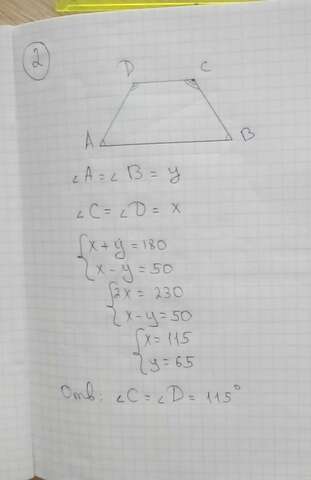 2
D C
A B
∠A = ∠B = y
∠C = ∠D = x
{x + y = 180
{x - y = 50
{2x = 230
{x - y = 50
{x = 115
{y = 65
Отв: ∠C = ∠D = 115°